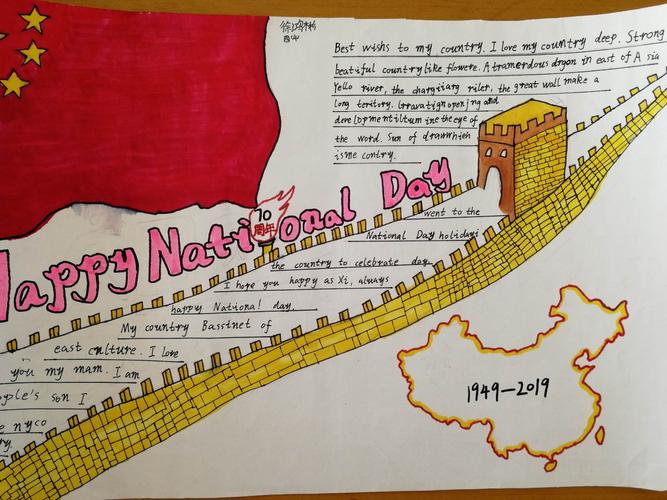 Best wishs to my country. I love my country deep. Strong
beatiful country like flowere. A tramerdous drgon in east of A sia
Yello river, the changjiang riler, the great wall make a
long teritory. openjng and
in the eye of
the word. Sun of
isme contry.
Happy National Day
70
周年
went to the
National Day holidays
the country to celebrate day.
I hope you happy as Xi, aluays
happy National day.
My country Bassinet of
east culture. I love
you my mam. I am
ople's son I
e nyco
ry.
1949-2019